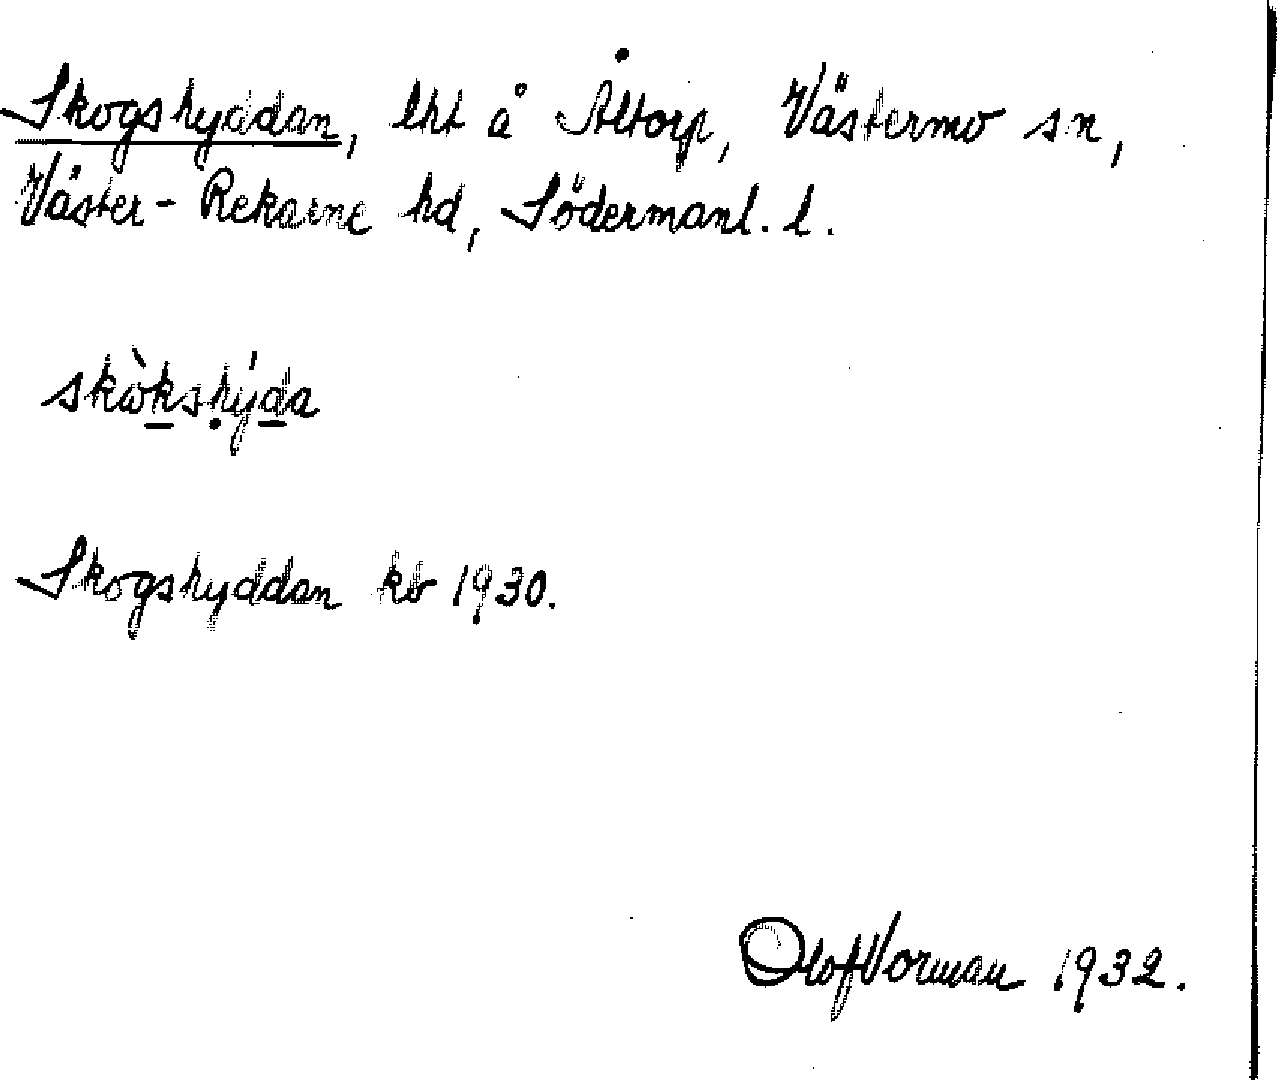 Skogshyddan, lht å Åltorp, Västermo sn,
Väster-Rekarne hd, Södermanl. l.
skòkshýda
Skogshyddan kb 1930.
Olof Vorman 1932.